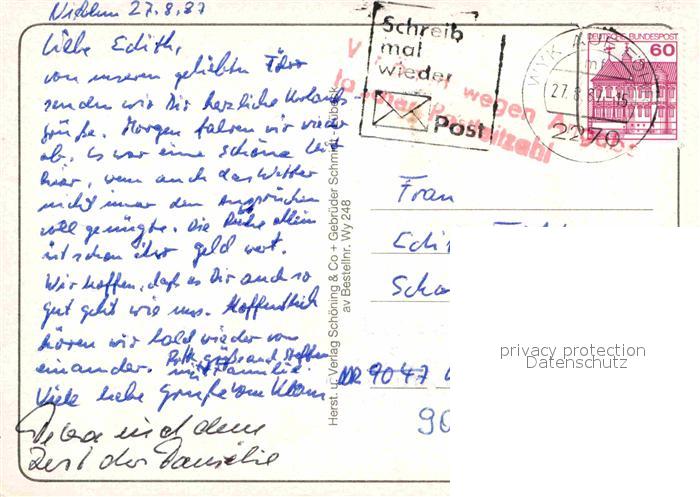 Nieblum 27.8.87
Liebe Edith,
von unserem geliebten Föhr
senden wir Dir herzliche Urlaubs-
grüße. Morgen fahren wir wieder
ab. Es war eine schöne Zeit
hier, wenn auch das Wetter
nicht immer den Ansprüchen
voll genügte. Die Ruhe allein
ist schon ihr Geld wert.
Wir hoffen, daß es Dir auch so
gut geht wie uns. Hoffentlich
hören wir bald wieder von
einander. Bitte grüße auch Steffen
mit Familie.
Viele liebe Grüße von Klaus
und dem
Rest der Familie
Schreib
mal
wieder
Post
wegen
falscher Postleitzahl
WYK AUF FÖHR
27.8.87-15
2270
DEUTSCHE BUNDESPOST
60
Herst. u. Verlag Schöning & Co + Gebrüder Schmidt, Lübeck
av Bestellnr. Wy 248
Frau
Edi
Scha
9047
90
privacy protection
Datenschutz